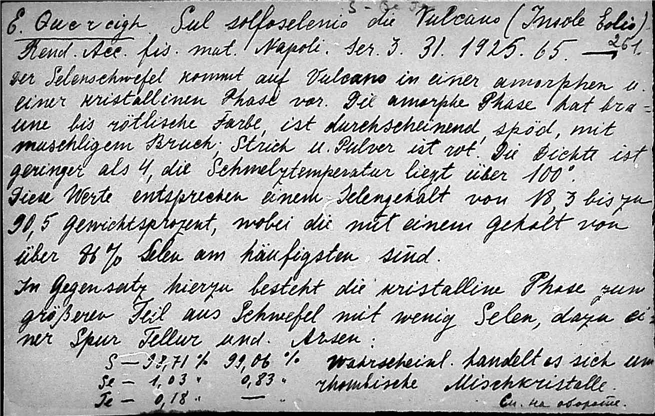 S-Se-Te
E. Quercigh. Sul solfoselenio die Vulcano (Insole Eolie)
Rend. Acc. fis. mat. Napoli. Ser. 3. 31. 1925. 65. — 261.
Der Selenschwefel kommt auf Vulcano in einer amorphen u.
einer kristallinen Phase vor. Die amorphe Phase hat bra=
une bis rötliche Farbe, ist durchscheinend, spöd, mit
muschligem Bruch. Strich u. Pulver ist rot. Die Dichte ist
geringer als 4, die Schmelztemperatur liegt über 100°.
Diese Werte entsprechen einem Selengehalt von 18,3 bis zu
90,5 gewichtsprozent, wobei die mit einem Gehalt von
über 86% Selen am häufigsten sind.
In Gegensatz hierzu besteht die kristalline Phase zum
größeren Teil aus Schwefel mit wenig Selen, dazu ei-
ner Spur Tellur und Arsen:
S — 98,71 % 99,06 % Wahrscheinl. handelt es sich um
Se — 1,03 " 0,83 " rhombische Mischkristalle.
Te — 0,18 " — " См. на обороте.